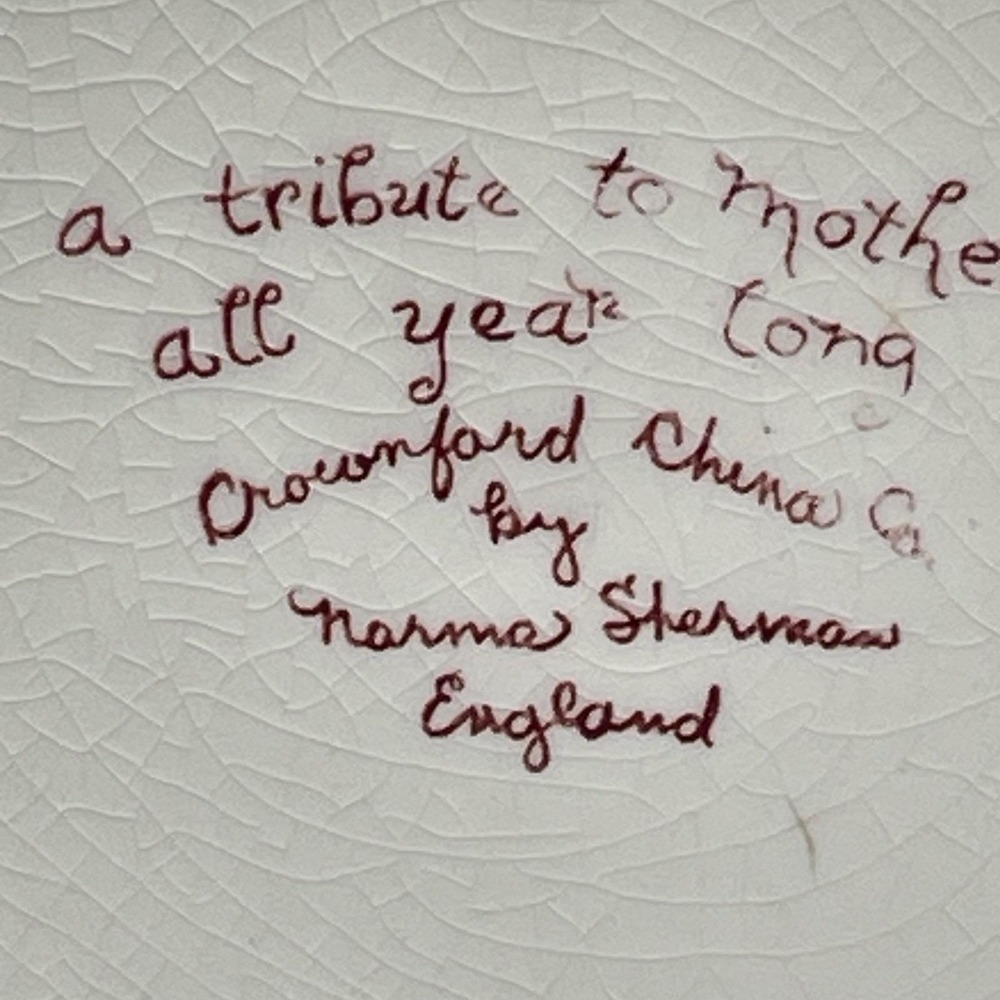 a tribute to Mothe
all year long
Crownford China Co.
by
Norma Sherman
England